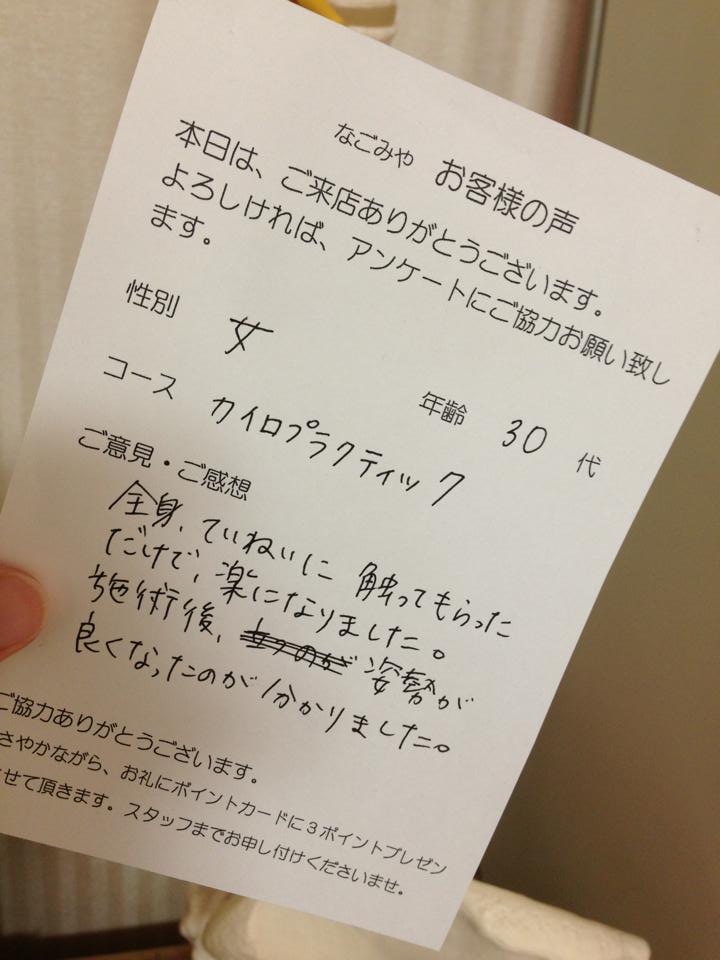 なごみや お客様の声
本日は、ご来店ありがとうございます。
よろしければ、アンケートにご協力お願い致し
ます。
性別 女 年齢 30 代
コース カイロプラクティック
ご意見・ご感想
全身、ていねいに 触ってもらった
だけで、楽になりました。
施術後、 姿勢が
良くなったのが分かりました。
ご協力ありがとうございます。
さやかながら、お礼にポイントカードに3ポイントプレゼン
させて頂きます。スタッフまでお申し付けくださいませ。